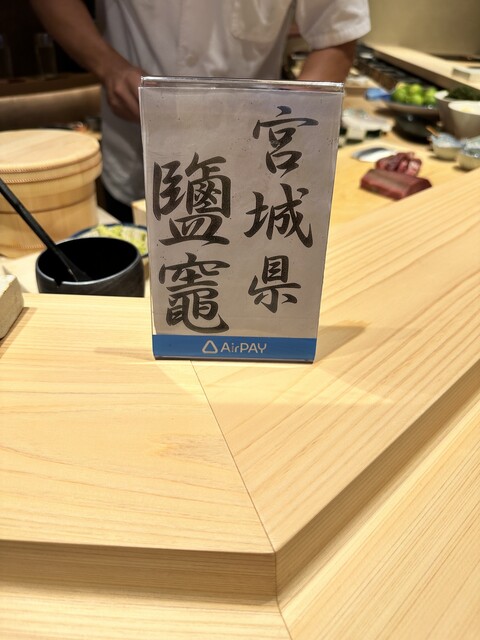 宮城県
鹽竈
AirPAY